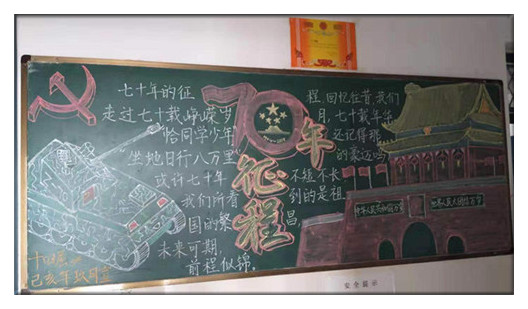 七十年的征程,回忆往昔,我们
走过七十载峥嵘岁月,七十载年华
恰同学少年 还记得
坐地日行八万里的豪迈吗
或许七十年不短不长
我们所看到的是祖
国的繁昌,
未来可期,
前程似锦。
70年
征程
中华人民共和国万岁
世界人民大团结万岁
己亥年
安全提示